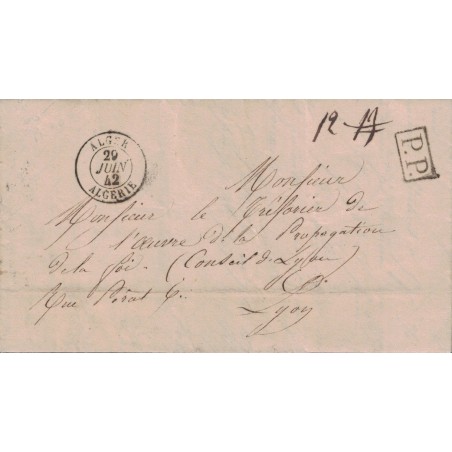 ALGER
29
JUIN
42
ALGÉRIE
12
P.P.
Monsieur
Monsieur le Trésorier de
l'Œuvre de la Propagation
de la foi. (Conseil de Lyon)
Rue
Lyon